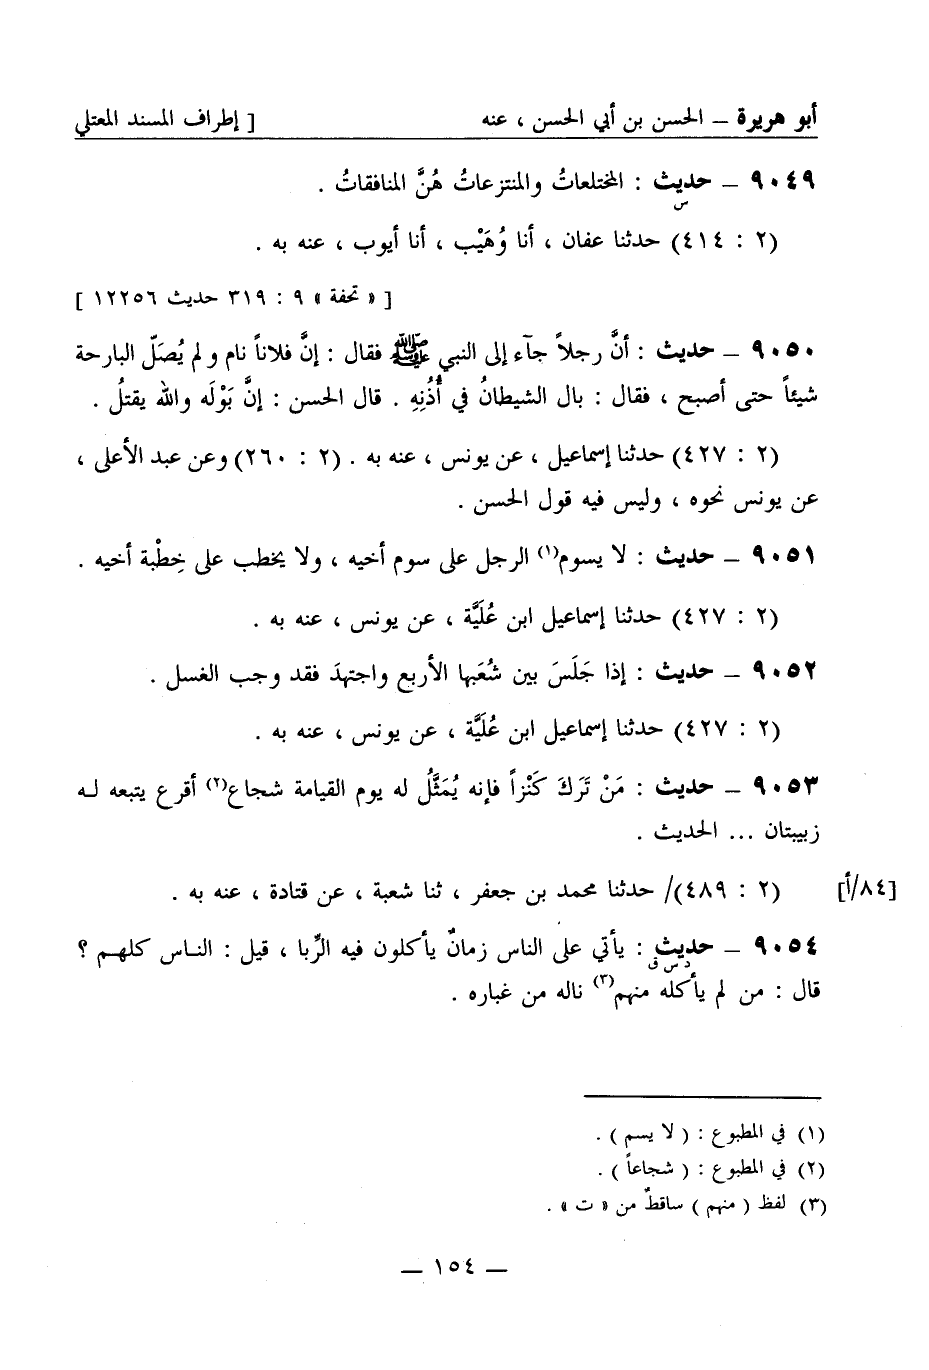 أبو هريرة – الحسن بن أبي الحسن ، عنه [ إطراف المسند المعتلي
٩٠٤٩ – حديث : المختلعاتُ والمنتزعاتُ هُنَّ المنافقاتُ .
س
(٢ : ٤١٤) حدثنا عفان ، أنا وُهَيْب ، أنا أيوب ، عنه به .
[ « تحفة » ٩ : ٣١٩ حديث ١٢٢٥٦ ]
٩٠٥٠ – حديث : أنَّ رجلاً جآء إلى النبي ﷺ فقال : إنَّ فلاناً نام و لم يُصَلّ البارحة
شيئاً حتى أصبح ، فقال : بال الشيطانُ في أُذُنِهِ . قال الحسن : إنَّ بَوْلَه والله يقتلُ .
(٢ : ٤٢٧) حدثنا إسماعيل ، عن يونس ، عنه به . (٢ : ٢٦٠) وعن عبد الأعلى ،
عن يونس نحوه ، وليس فيه قول الحسن .
٩٠٥١ – حديث : لا يسوم(١) الرجل على سوم أخيه ، ولا يخطب على خِطْبة أخيه .
(٢ : ٤٢٧) حدثنا إسماعيل ابن عُلَيَّة ، عن يونس ، عنه به .
٩٠٥٢ – حديث : إذا جَلَسَ بين شُعَبها الأربع واجتهدَ فقد وجب الغسل .
(٢ : ٤٢٧) حدثنا إسماعيل ابن عُلَيَّة ، عن يونس ، عنه به .
٩٠٥٣ – حديث : مَنْ تَرَكَ كَنْزاً فإنه يُمَثَّلُ له يوم القيامة شجاع(٢) أقرع يتبعه لـه
زبيبتان ... الحديث .
[٨٤/أ] (٢ : ٤٨٩)/ حدثنا محمد بن جعفر ، ثنا شعبة ، عن قتادة ، عنه به .
٩٠٥٤ – حديث : يأتي على الناس زمانٌ يأكلون فيه الرِّبا ، قيل : النـاس كلهـم ؟
د س ق
قال : من لم يأكله منهم(٣) ناله من غباره .
(١) في المطبوع : ( لا يسم ) .
(٢) في المطبوع : ( شجاعاً ) .
(٣) لفظ ( منهم ) ساقطٌ من « ت » .
– ١٥٤ –